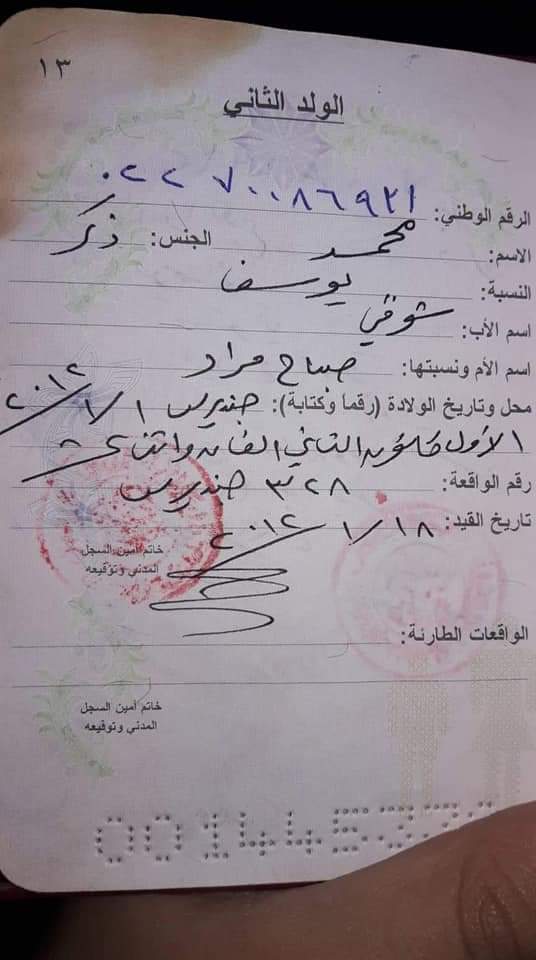 ١٣
الولد الثاني
الرقم الوطني: ٠٢٢٧٠٠٨٦٩٣١
الاسم: محمد الجنس: ذكر
النسبة: يوسف
اسم الأب: شوقي
اسم الأم ونسبتها: صباح مراد
محل وتاريخ الولادة (رقماً وكتابة): جنديرس ١/١/٢٠١٢
الأول كانون الثاني الفان واثنا
رقم الواقعة: ٣٢٨ جنديرس
تاريخ القيد: ١٨/١/٢٠١٢
خاتم أمين السجل
المدني وتوقيعه
الواقعات الطارئة:
خاتم أمين السجل
المدني وتوقيعه
00144537